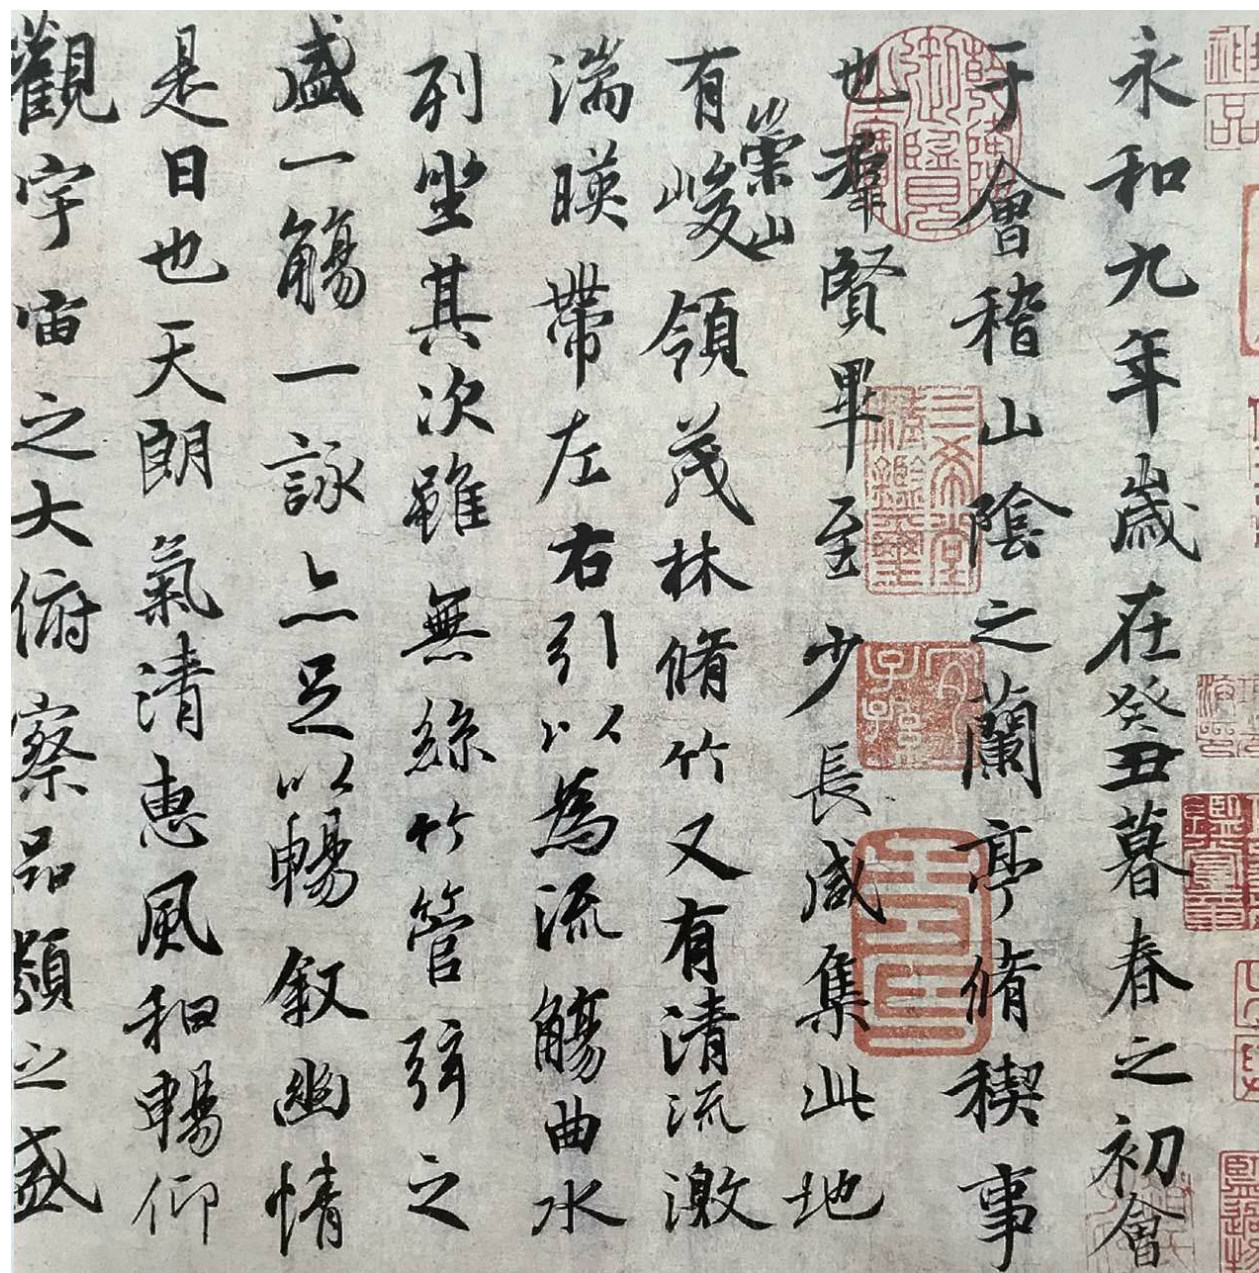 永和九年歲在癸丑暮春之初會
于會稽山陰之蘭亭脩稧事
也羣賢畢至少長咸集此地
有崇山峻領茂林脩竹又有清流激
湍暎帶左右引以為流觴曲水
列坐其次雖無絲竹管弦之
盛一觴一詠亦足以暢敘幽情
是日也天朗氣清惠風和暢仰
觀宇宙之大俯察品類之盛
神品
三希堂精鑑璽
宜子孫